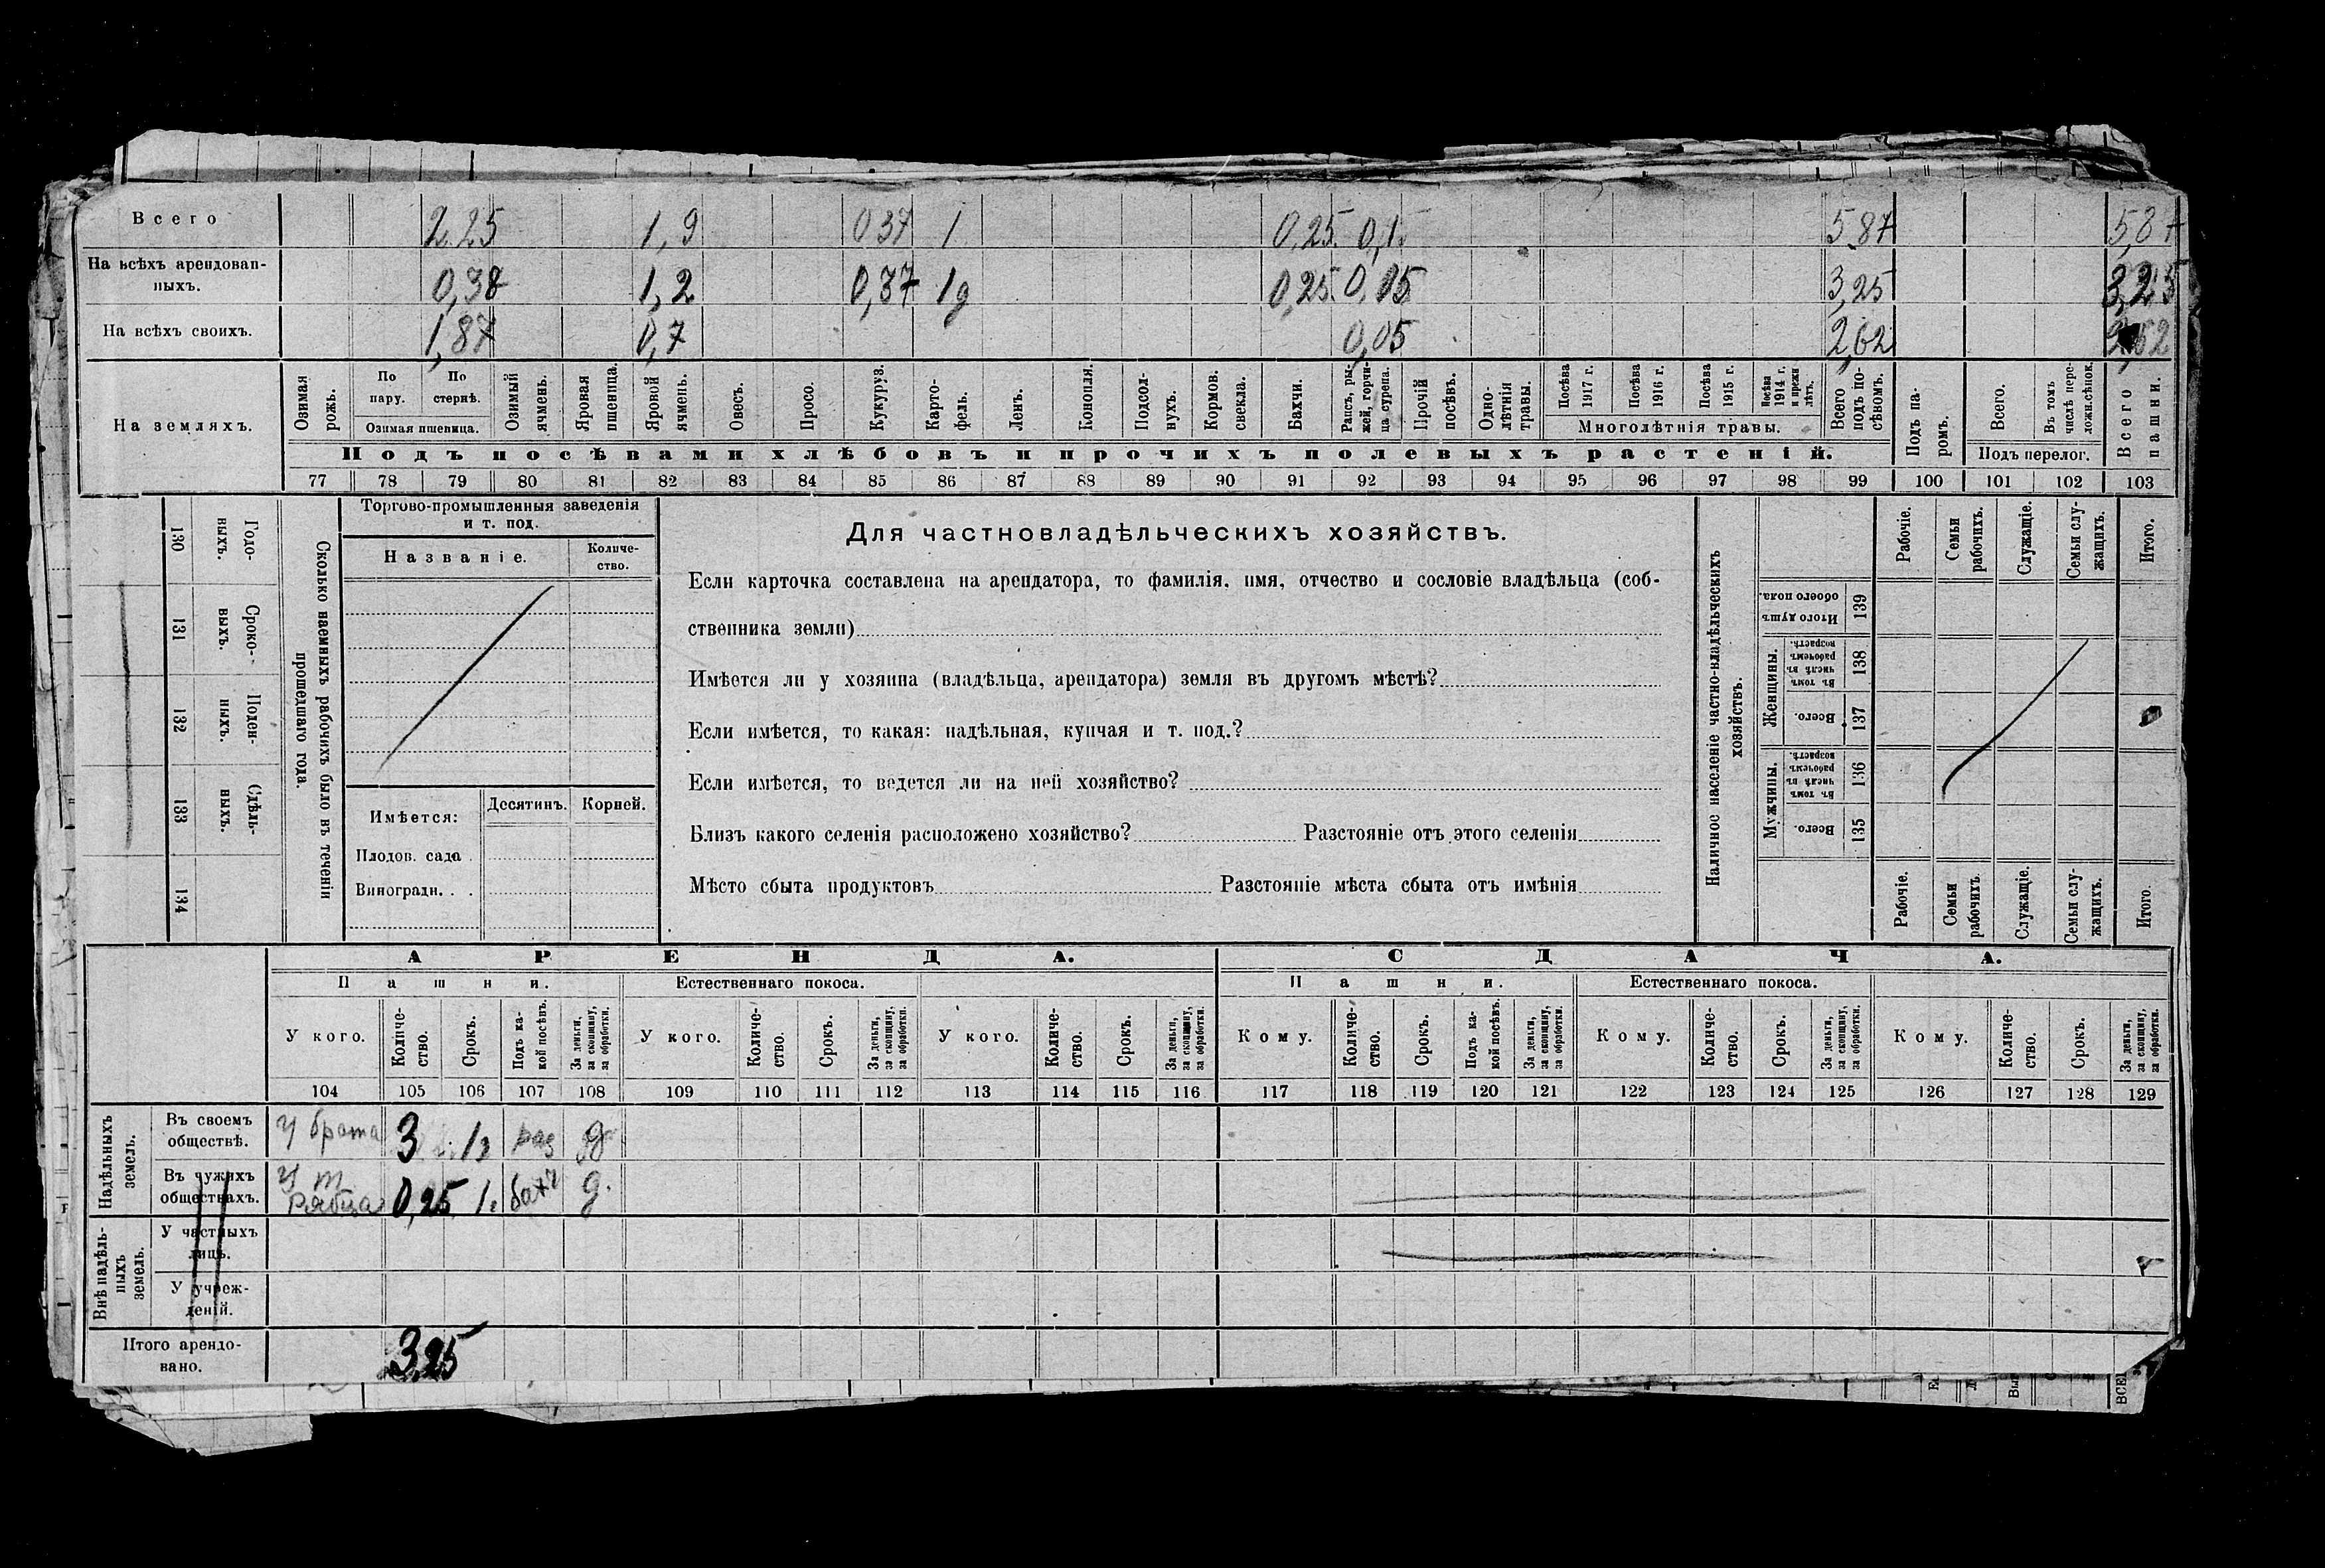 Всего 2,25 1,9 0 37 1 0,25 0,1 5,87 5,87
На всѣхъ арендован-
ныхъ. 0,38 1,2 0,37 1д 0,25 0,05 3,25 3,25
На всѣхъ своихъ. 1,87 0,7 0,05 2,62 2,62
На земляхъ.
Озимая рожь.
По пару.
По стернѣ.
Озимая пшеница.
Озимый ячмень.
Яровая пшеница.
Яровой ячмень.
Овесъ.
Просо.
Кукуруз.
Карто-
фель.
Ленъ.
Конопля.
Подсол-
нухъ.
Кормов. свекла.
Бахчи.
Рапсъ, ры-
жей, горчи-
ца сурепа.
Прочій посѣвъ.
Одно-
лѣтнія травы.
Посѣва 1917 г.
Посѣва 1916 г.
Посѣва 1915 г.
Посѣва 1914 г. и прежн лѣтъ.
Многолѣтнія травы.
Всего подъ по-
сѣвомъ.
Подъ па-
ромъ.
Всего.
Въ томъ числѣ пере-
ложн. сѣнок.
Подъ перелог.
Всего пашни.
Подъ посѣвами хлѣбовъ и прочихъ полевыхъ растеній.
77 78 79 80 81 82 83 84 85 86 87 88 89 90 91 92 93 94 95 96 97 98 99 100 101 102 103
Сколько наемныхъ рабочихъ было въ теченіи
прошедшаго года.
Годо-
выхъ.
130
Сроко-
выхъ.
131
Поден-
ныхъ.
132
Сдѣль-
ныхъ.
133
134
Торгово-промышленныя заведенія
и т. под.
Названіе.
Количе-
ство.
Имѣется:
Десятинъ.
Корней.
Плодов. сада .
Виноградн. . .
Для частновладѣльческихъ хозяйствъ.
Если карточка составлена на арендатора, то фамилія, имя, отчество и сословіе владѣльца (соб-
ственника земли)
Имѣется ли у хозяина (владѣльца, арендатора) земля въ другомъ мѣстѣ?
Если имѣется, то какая: надѣльная, купчая и т. под.?
Если имѣется, то ведется ли на ней хозяйство?
Близъ какого селенія расположено хозяйство? Разстояніе отъ этого селенія
Мѣсто сбыта продуктовъ Разстояніе мѣста сбыта отъ имѣнія
Наличное населеніе частно-владѣльческихъ
хозяйствъ.
Рабочіе.
Семьи рабочихъ.
Служащіе.
Семьи слу-
жащихъ.
Итого.
Итого душъ обоего пола.
139
Женщины.
Въ томъ числѣ въ рабочемъ возрастѣ.
138
Всего.
137
Мужчины.
Въ томъ числѣ въ рабочемъ возрастѣ.
136
Всего.
135
Рабочіе.
Семьи рабочихъ
Служащіе.
Семьи слу-
жащихъ.
Итого.
АРЕНДА.
СДАЧА.
Пашни.
Естественнаго покоса.
Пашни.
Естественнаго покоса.
У кого.
Количе-
ство.
Срокъ.
Подъ ка-
кой посѣвъ.
За деньги, за скопщину, за обработки.
У кого.
Количе-
ство.
Срокъ.
За деньги, за скопщину, за обработки.
У кого.
Количе-
ство.
Срокъ.
За деньги, за скопщину, за обработки.
Кому.
Количе-
ство.
Срокъ.
Подъ ка-
кой посѣвъ.
За деньги, за скопщину, за обработки.
Кому.
Количе-
ство.
Срокъ.
За деньги, за скопщину, за обработки.
Кому.
Количе-
ство.
Срокъ.
За деньги, за скопщину, за обработки.
104 105 106 107 108 109 110 111 112 113 114 115 116 117 118 119 120 121 122 123 124 125 126 127 128 129
Надѣльныхъ земель.
Въ своемъ
обществѣ. У брата 3 1г раз д
Въ чужихъ
обществахъ. 0,25 1г бахч д.
Внѣ надѣль-
ныхъ земель.
У частныхъ
лицъ.
У учреж-
деній.
Итого арендо-
вано. 3,25